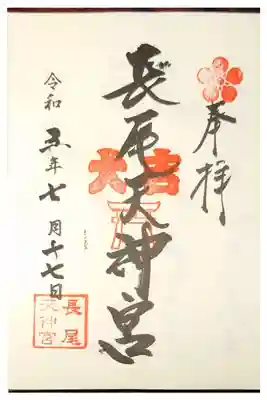 奉拝
長尾天神宮
大吉
令和五年七月十七日
長尾
天神宮